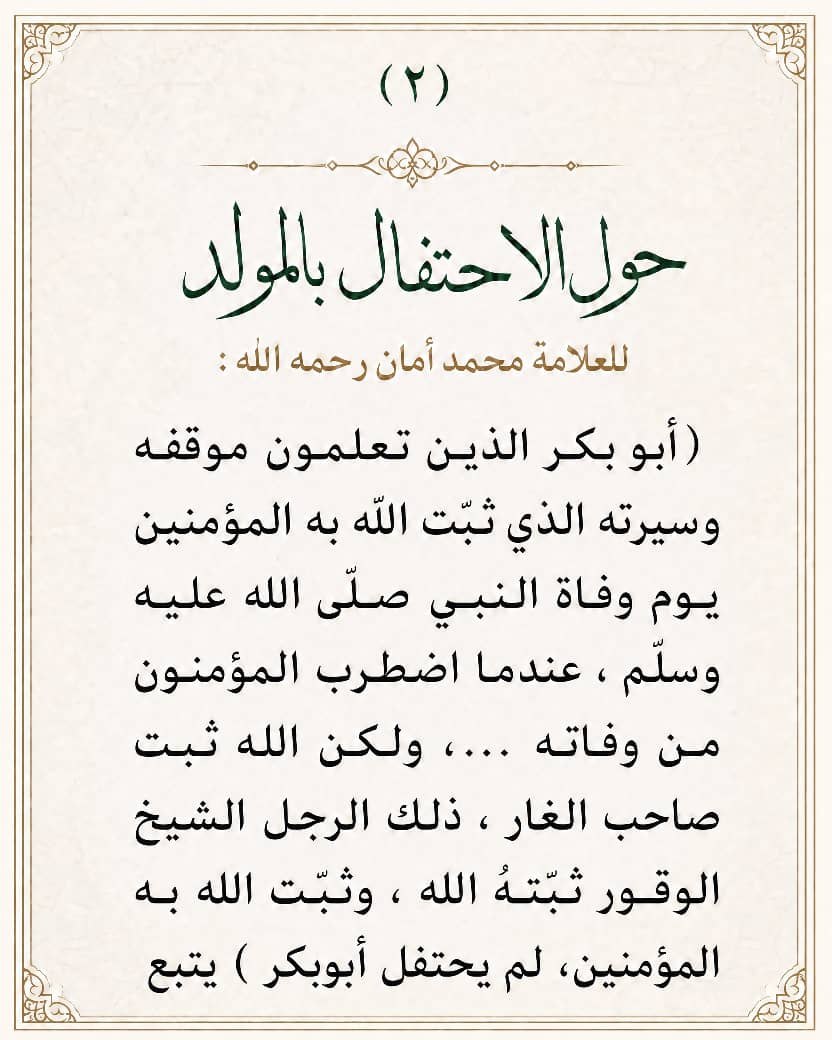 (٢)
حول الاحتفال بالمولد
للعلامة محمد أمان رحمه الله :
(أبو بكر الذين تعلمون موقفه
وسيرته الذي ثبّت الله به المؤمنين
يوم وفاة النبي صلّى الله عليه
وسلّم ، عندما اضطرب المؤمنون
من وفاته ...، ولكن الله ثبت
صاحب الغار ، ذلك الرجل الشيخ
الوقور ثبّتهُ الله ، وثبّت الله به
المؤمنين، لم يحتفل أبوبكر ) يتبع